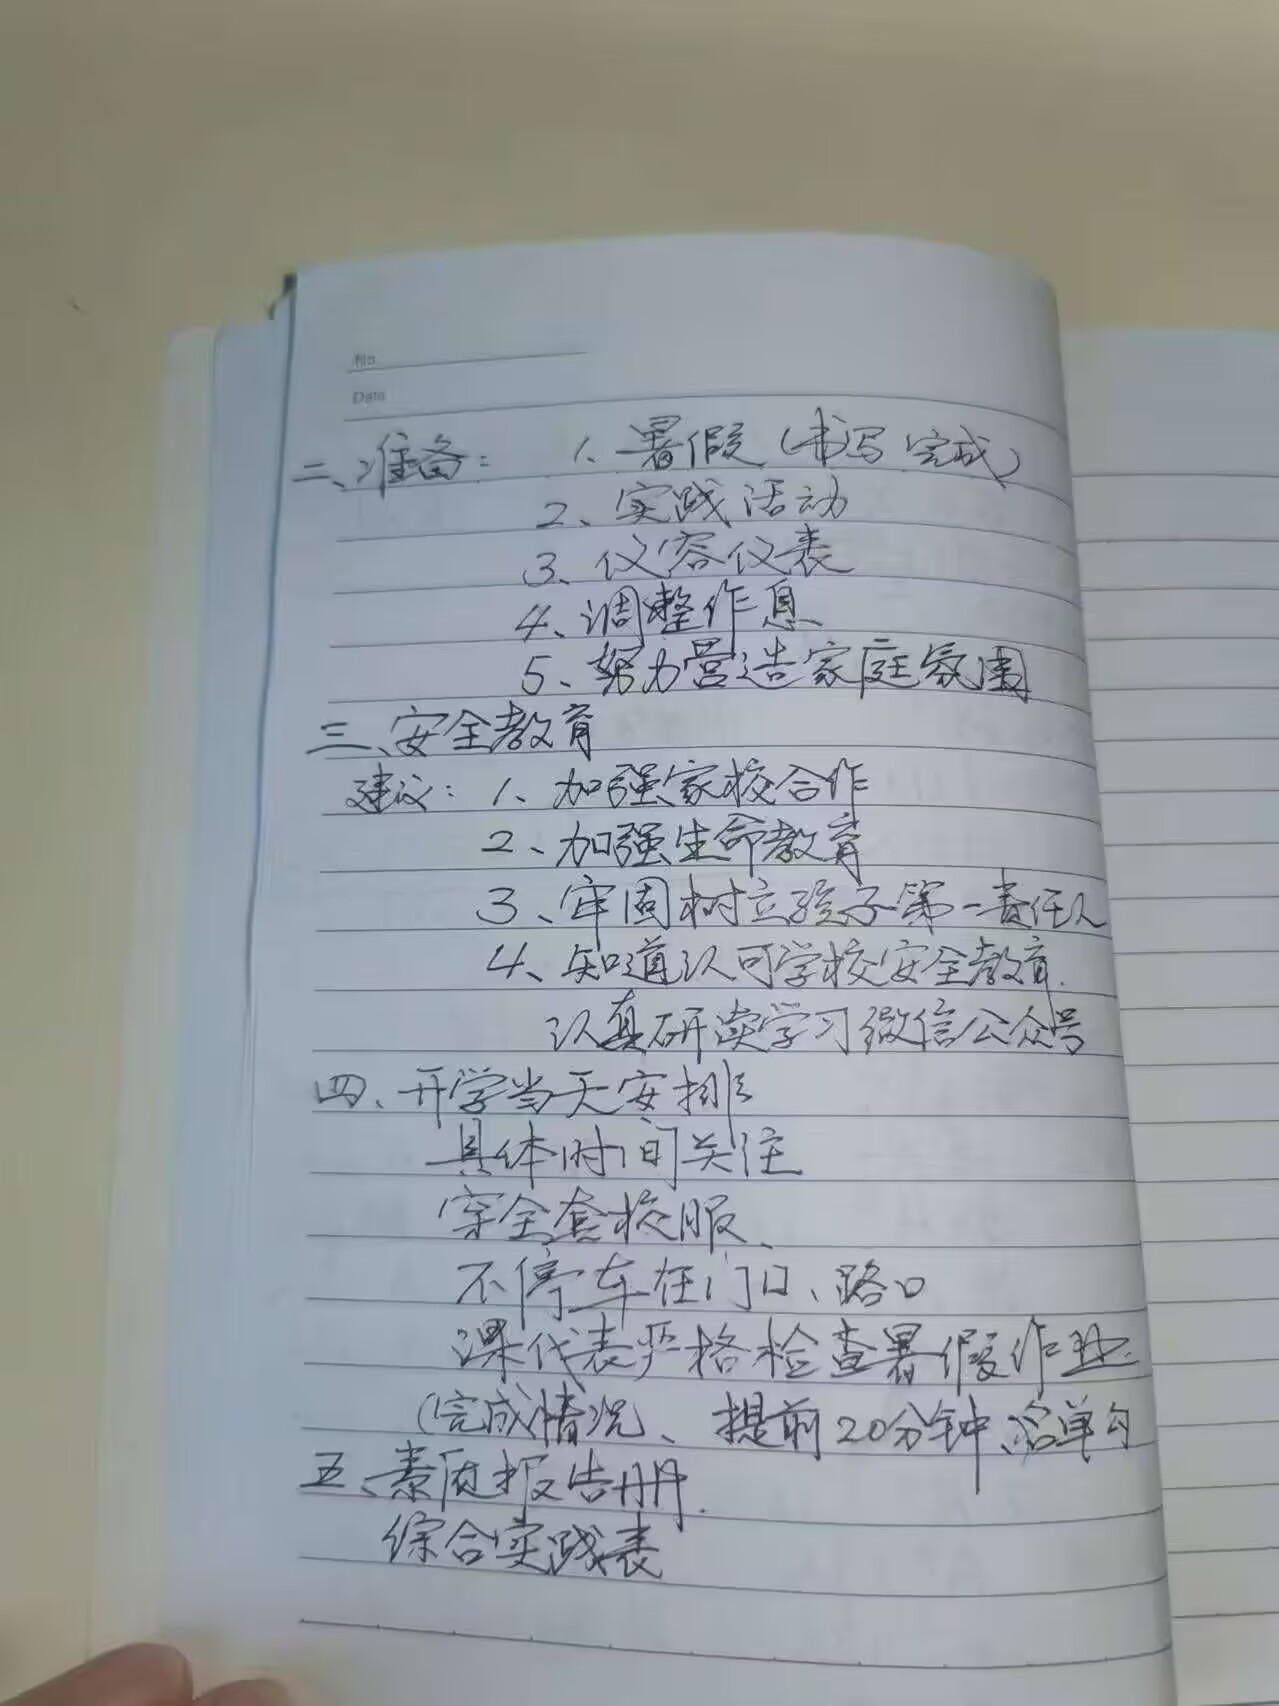 No.
Date
二、准备：1、暑假（书写完成）
2、实践活动
3、仪容仪表
4、调整作息
5、努力营造家庭氛围
三、安全教育
建议：1、加强家校合作
2、加强生命教育
3、牢固树立孩子第一责任人
4、知道认可学校安全教育.
认真研读学习微信公众号
四、开学当天安排
具体时间关注
穿全套校服、
不停车在门口、路口
课代表严格检查暑假作业.
（完成情况、提前20分钟、名单
五、素质报告册.
综合实践表